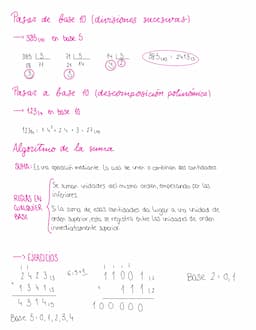 Pasar de base 10 (divisiones sucesivas)
→ 383(10 en base 5
383 |5 76 |5 15 |5
Pasar a base 10 (descomposición polinómica)
→ 123(4 en base 10
Algoritmo de la suma
SUMA: Es una operación mediante la cual se unen o combinan dos cantidades.
REGLAS EN CUALQUIER BASE
Se suman unidades del mismo orden, empezando por las inferiores.
Si la suma de estas cantidades da lugar a una unidad de orden superior, esta se registra entre las unidades de orden inmediatamente superior.
→ EJERCICIOS
2423(5
+ 1341(5
4314(5
11001(2
+ 111(2
100000
Base 2: 0,1
Base 5: 0,1,2,3,4